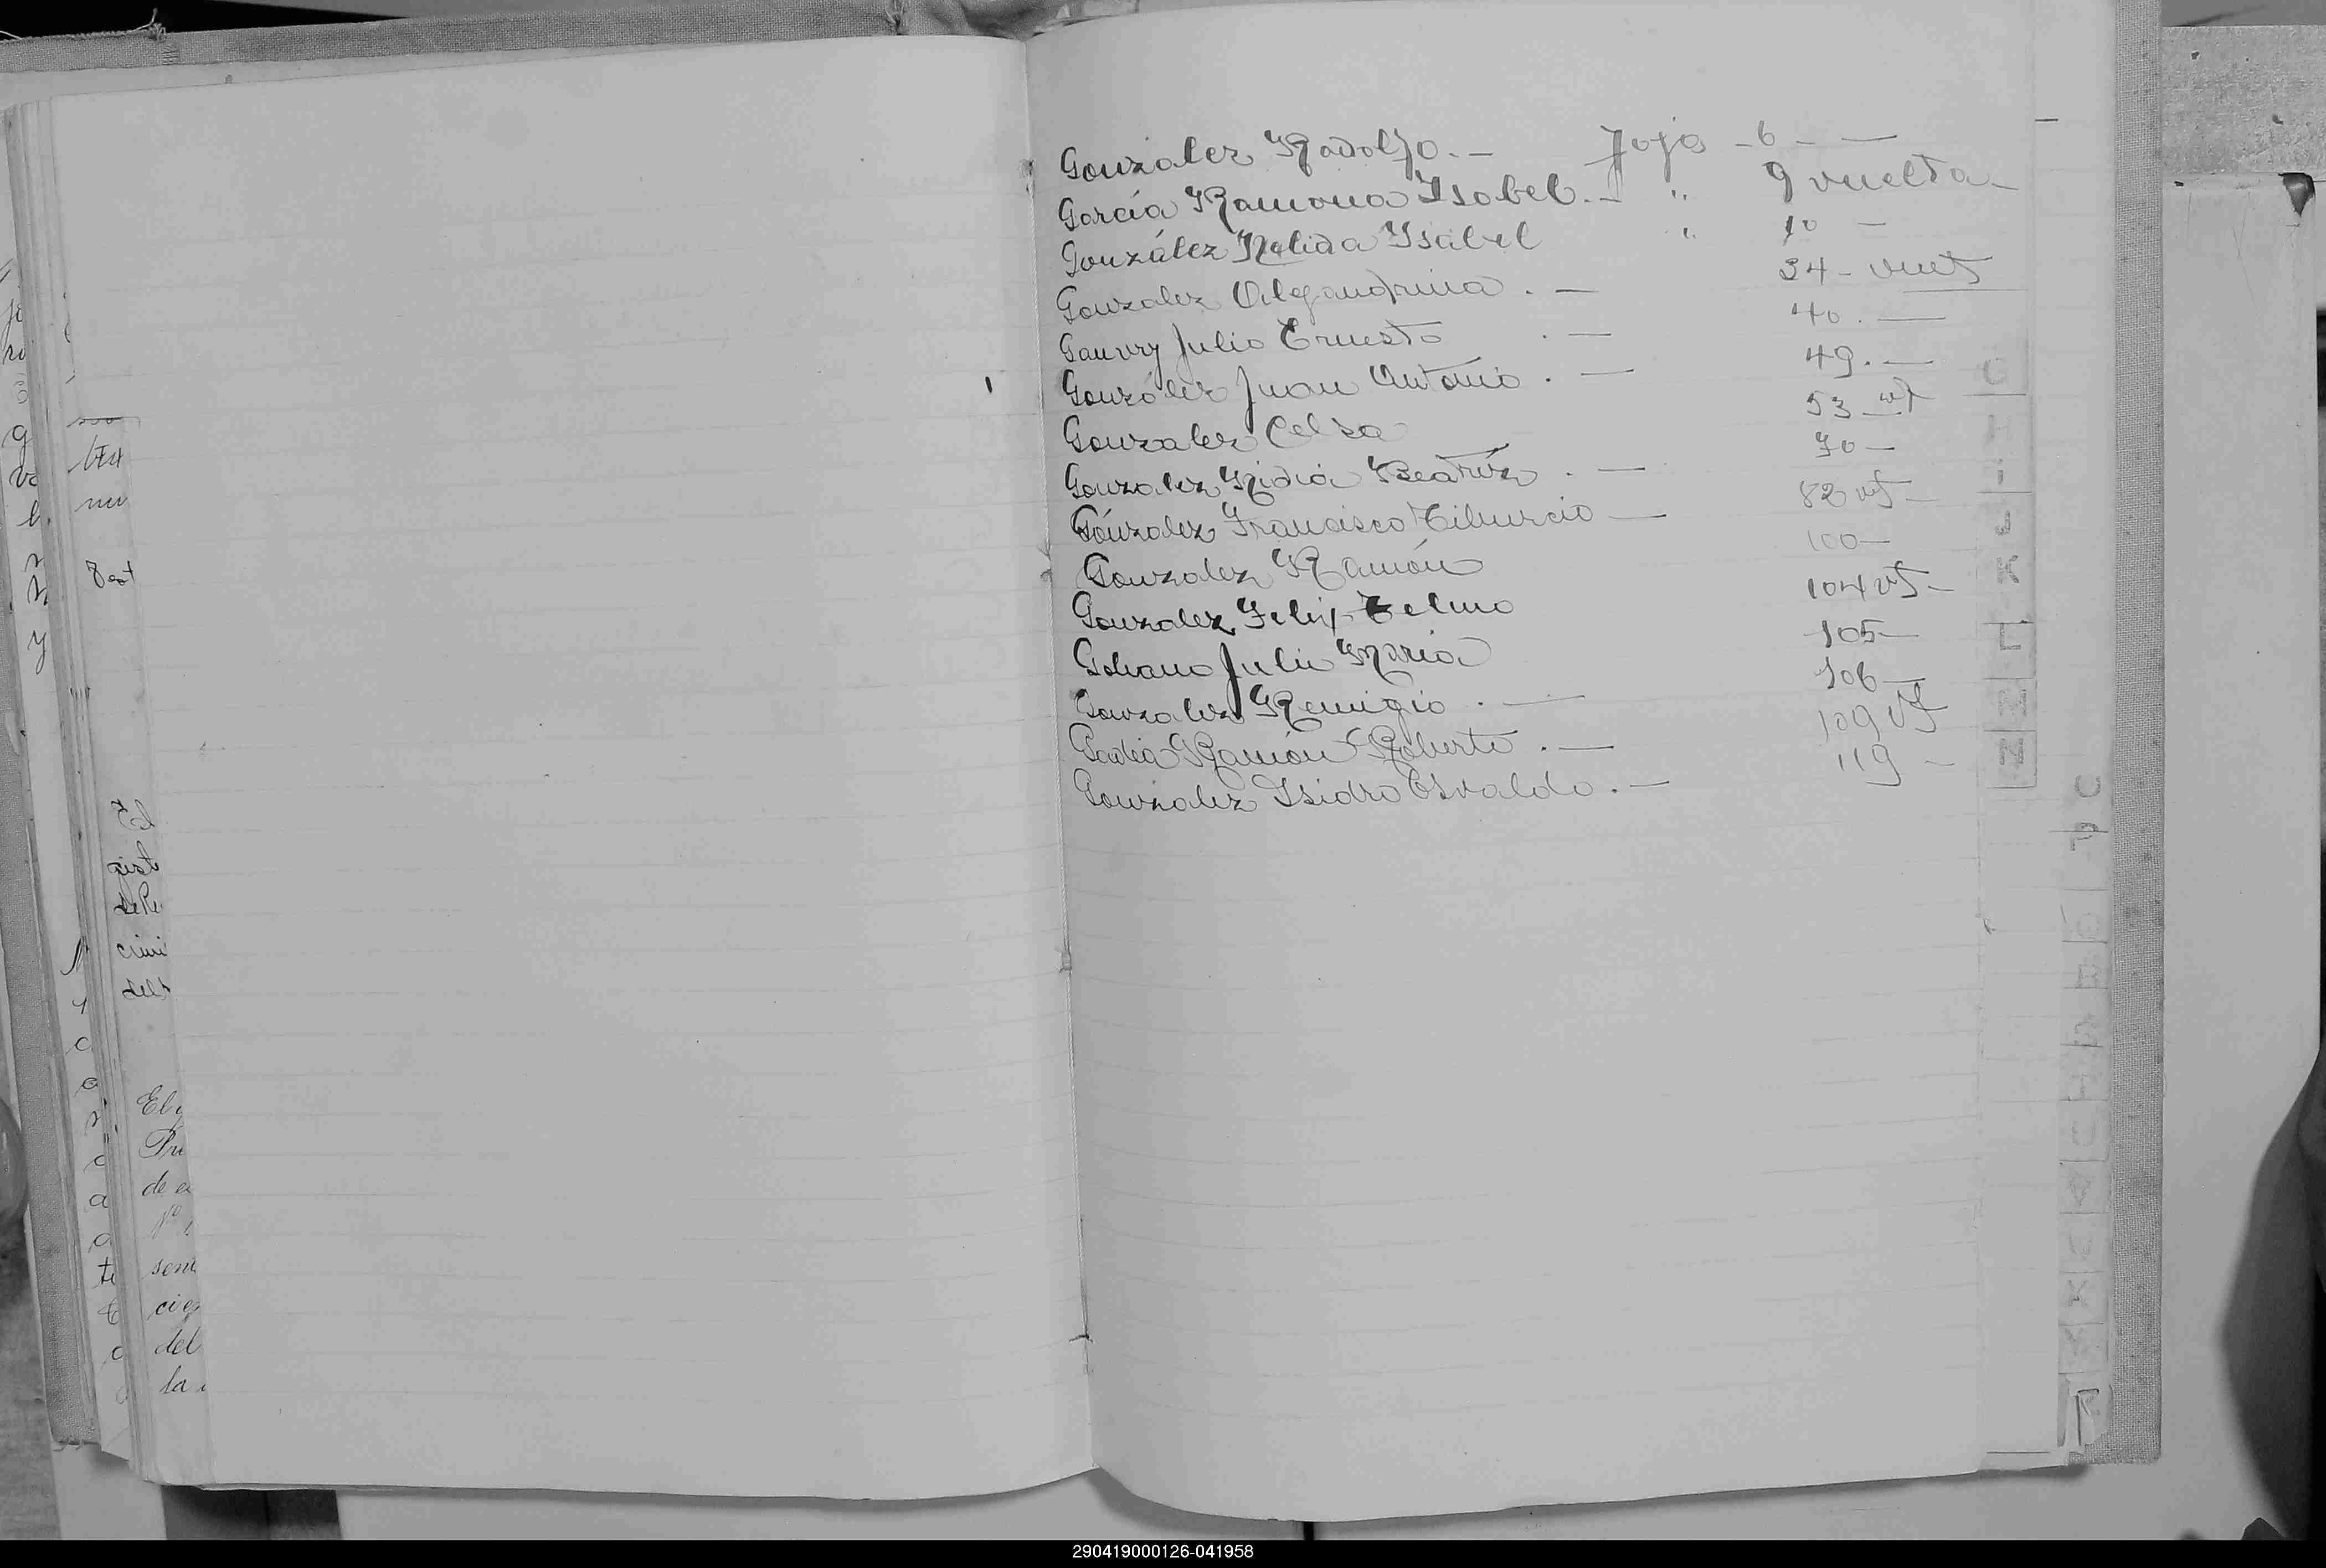 Gonzalez Rodolfo.— Foja — 6 — —
García Ramona Isabel.— " 9 vuelta —
González Nelida Isabel " 10 —
Gonzalez Alejandrina . — 34 - vuet
Gauvry Julio Ernesto . — 40 . —
González Juan Antonio . — 49 . —
Gonzalez Celsa 53 vt
Gonzalez Nidia Beatríz . — 70 —
Gónzalez Francisco Tiburcio — 82 vt —
Gonzalez Ramón 100 —
Gonzalez Felix Telmo 104 vt —
Julio María 105 —
Gonzalez Remigio . — 106 —
Ramón Roberto . — 109 vt
Gonzalez Isidro Osvaldo . — 119 —
El
gist
de Pe
cimi
del
El
Pri
de
del
la
290419000126-041958